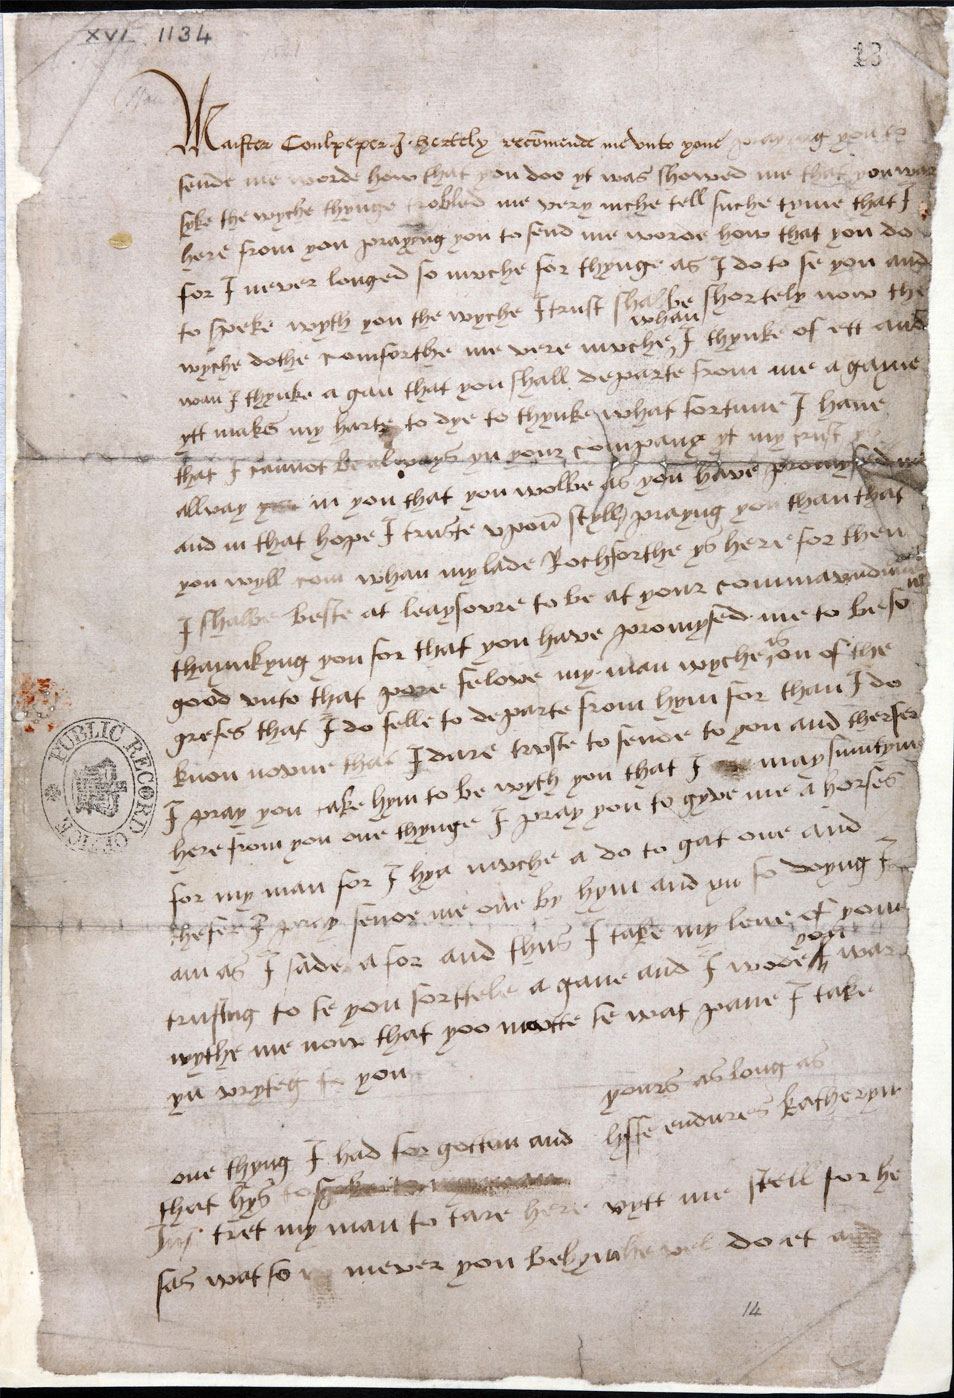 XVI 1134
13
Maister Coulpeper I hertely recomende me unto youe praying you to
sende me worde how that you doo yt was showed me that you was
syke the wyche thynge trobled me very muche tell suche tyme that I
here from you praying you to send me worde how that you do
for I never longed so muche for thynge as I do to se you and
to speke wyth you the wyche I trust shal be shortely now the
wyche dothe comforthe me vere muche whan I thynke of ett and
wan I thynke a gan that you shall departe from me a gayne
ytt makes my harte to dye to thynke what fortune I have
that I cannot be always yn your company yt my trust ys
allway in you that you wolbe as you have promysed me
and in that hope I truste upon styll prayng you than that
you wyll com whan my lade Rochforthe ys here for then
I shalbe beste at leaysoure to be at your commaundment
thaynkyng you for that you have promysed me to be so
good unto that pore felowe my man wyche ys on of the
grefes that I do felle to departe from hym for than I do
know nowne that I dare truste to sende to you and therfor
I pray you take hym to be wyth you that I may sumtym
here from you one thynge I pray you to gyve me a horsse
for my man for I hyd muche a do to gat one and
thefer I pray sende me one by hym and yn so doyng I
am as I sade afor and thus I take my leve of you
trusting to se you shorttele a gane and I wode you war
wythe me now that yoo maitte se wat pane I take
yn wryteg to you
yours as long as
lyffe endures Katheryn
one thyng I had forgotten and
that hys to
Ins tret my man to tare here wytt me still for he
sas wat so mever you bed hym he wel do et and
14
PUBLIC RECORD OFFICE